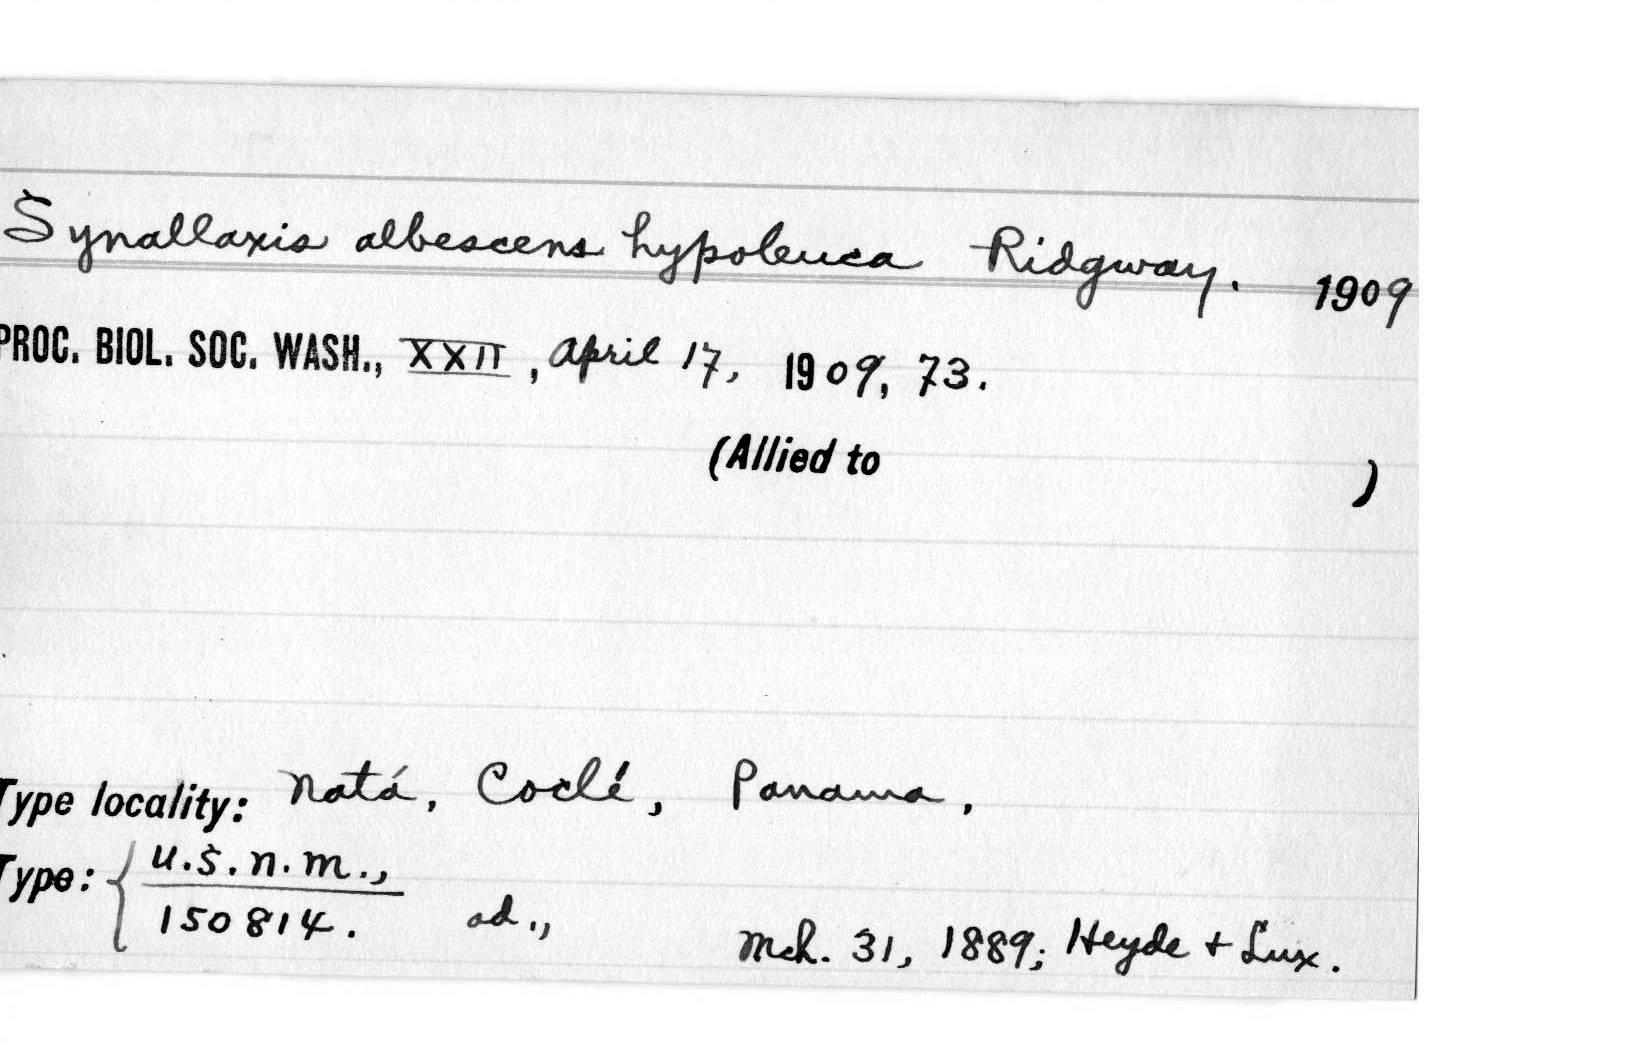 Synallaxis albescens hypoleuca Ridgway. 1909
PROC. BIOL. SOC. WASH., XXII, April 17, 1909, 73.
(Allied to )
Type locality: Natá, Coclé, Panama,
Type: { U.S.N.M.,
150814. ad., Mch. 31, 1889; Heyde + Lux.